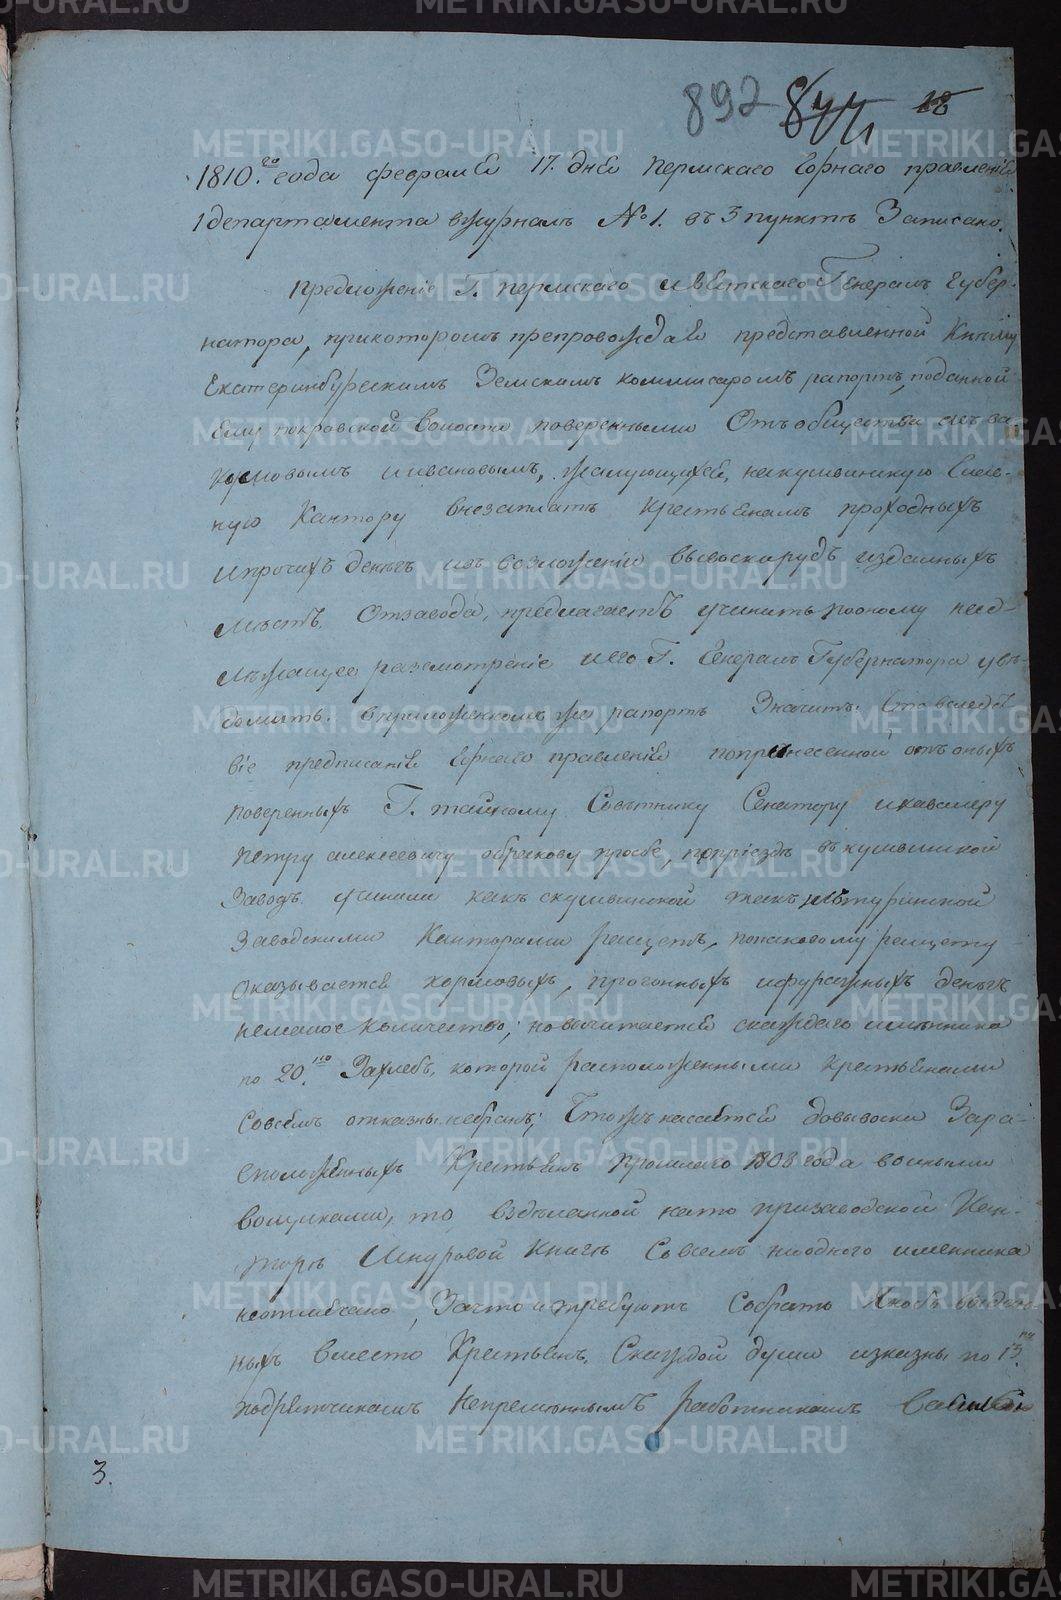 892 877 18
1810.го года февраля 17. дня Пермскаго Горнаго правления
1 департамента в журнале № 1. въ 3 пункте Записано.
Предложение Г. пермскаго и Вятскаго Генерал Губер-
натора, при котором препровождая представленной К нему
Екатеринбургским Земским коммисаром рапортъ, поданной
Ему покровской волости поверенными Отъ общества
и ивановым, жалующихся, на кушвинскую
ную Кантору в незаплате Крестьянам проходных
и прочих денег и в возложении вывоски руд из дальных
местъ От завода, предлагаетъ учинить по оному над-
лежащее разсмотрение и его Г. Генерал Губернатора уве-
домить. в приложенном же рапорте Значитъ: Что вследст
вие предписания Горнаго правления по принесенной отъ оных
поверенных Г. тайному Советнику Сенатору и кавалеру
петру алексеевичу обрескову прозбе, по приезде въ кушвинской
Заводъ учинили как с кушвинской так и с туринской
Заводскими Канторами расчетъ, по таковому расчету
оказывается кормовых, прогонных и фуражных денегъ
немалое количество, но вычитается с каждаго имянника
по 20. Захлебъ, которой расположенными крестьянами
Совсемъ отказны не бранъ; Что жъ касается до вывоски За ра-
сположенных Крестьян прошлаго 1808 года вольными
вощиками, то в зделанной на то при заводской Кан-
торе Шнуровой Книге Совсем ни одного именника
не отмечено, За что и требуютъ Собрать Якобъ выдан
ных вместо Крестьян. С каждой души из казны по 13
подрятчикам Непременным работникам
3.